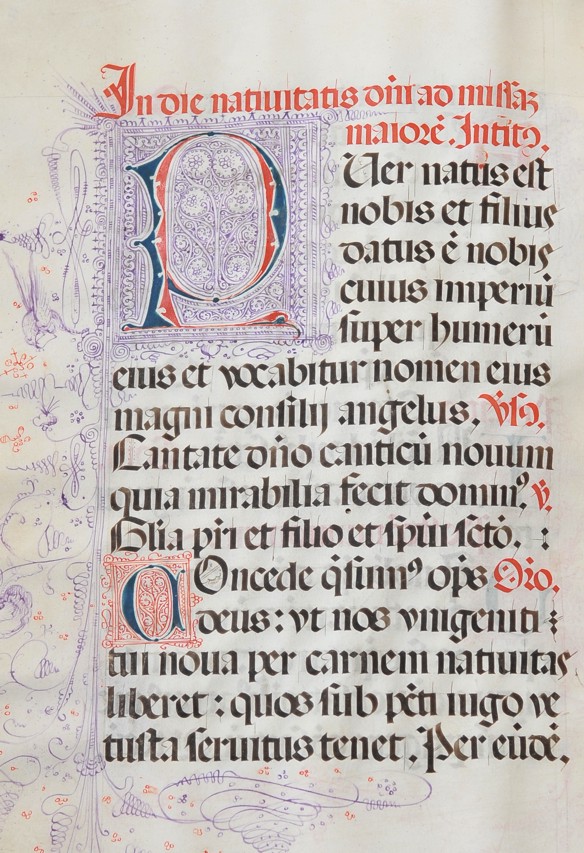 In die natiuitatis dñi ad missaz
maiorē. Intito.
PUer natus est
nobis et filius
datus ē nobis
cuius imperiū
super humerū
eius et vocabitur nomen eius
magni consilij angelus. Vso.
Cantate dño canticū nouum
quia mirabilia fecit domin⁹. V.
Glia pr̄i et filio et sp̄ui scto. :
COncede q̄sum⁹ op̄s Oro.
deus : vt nos vnigeniti :
tui noua per carnem natiuitas
liberet : quos sub pc̄ti iugo ve
tusta seruitus tenet. Per eūdē.